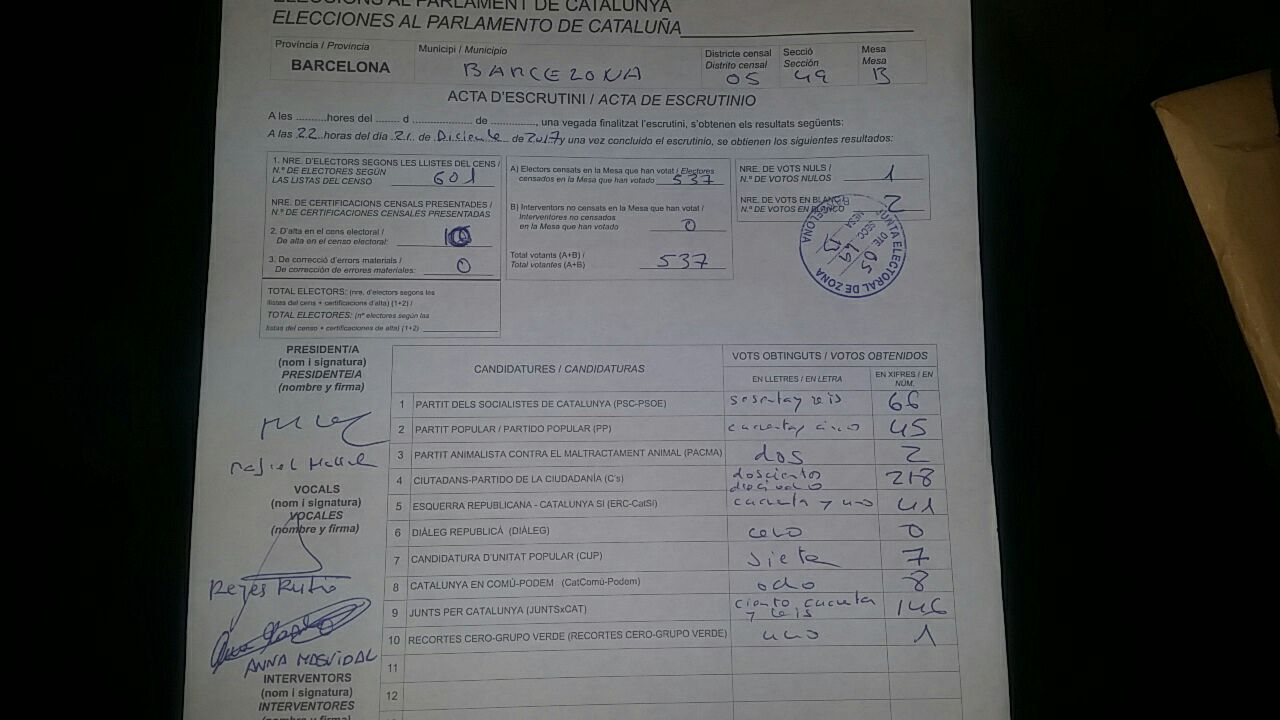 ELECCIONS AL PARLAMENT DE CATALUNYA
ELECCIONES AL PARLAMENTO DE CATALUÑA
Província / Provincia
BARCELONA
Municipi / Municipio
BARCELONA
Districte censal
Distrito censal
05
Secció
Sección
49
Mesa
Mesa
B
ACTA D'ESCRUTINI / ACTA DE ESCRUTINIO
A les ..........hores del ........ d .................... de ..............., una vegada finalitzat l'escrutini, s'obtenen els resultats següents:
A las 22 horas del día 21 de Diciembre de 2017 y una vez concluido el escrutinio, se obtienen los siguientes resultados:
1. NRE. D'ELECTORS SEGONS LES LLISTES DEL CENS /
N.º DE ELECTORES SEGÚN
LAS LISTAS DEL CENSO 601
NRE. DE CERTIFICACIONS CENSALS PRESENTADES /
N.º DE CERTIFICACIONES CENSALES PRESENTADAS
2. D'alta en el cens electoral /
De alta en el censo electoral:
3. De correcció d'errors materials /
De corrección de errores materiales: 0
TOTAL ELECTORS: (nre. d'electors segons les
llistes del cens + certificacions d'alta) (1+2) /
TOTAL ELECTORES: (nº electores según las
listas del censo + certificaciones de alta) (1+2)
A) Electors censats en la Mesa que han votat / Electores
censados en la Mesa que han votado 537
B) Interventors no censats en la Mesa que han votat /
Interventores no censados
en la Mesa que han votado 0
Total votants (A+B) /
Total votantes (A+B) 537
NRE. DE VOTS NULS /
N.º DE VOTOS NULOS 1
NRE. DE VOTS EN BLANC /
N.º DE VOTOS EN BLANCO 2
JUNTA ELECTORAL DE ZONA
BARCELONA
DTE. 05
SECC. 49
MESA B
PRESIDENT/A
(nom i signatura)
PRESIDENTE/A
(nombre y firma)
VOCALS
(nom i signatura)
VOCALES
(nombre y firma)
Reyes Rubio
ANNA MASVIDAL
INTERVENTORS
(nom i signatura)
INTERVENTORES
(nombre y firma)
CANDIDATURES / CANDIDATURAS
VOTS OBTINGUTS / VOTOS OBTENIDOS
EN LLETRES / EN LETRA
EN XIFRES / EN NÚM.
1 PARTIT DELS SOCIALISTES DE CATALUNYA (PSC-PSOE) sesentay seis 66
2 PARTIT POPULAR / PARTIDO POPULAR (PP) cuarentay cinco 45
3 PARTIT ANIMALISTA CONTRA EL MALTRACTAMENT ANIMAL (PACMA) dos 2
4 CIUTADANS-PARTIDO DE LA CIUDADANÍA (C's) doscientos dieciocho 218
5 ESQUERRA REPUBLICANA - CATALUNYA SI (ERC-CatSí) cuarenta y uno 41
6 DIÀLEG REPUBLICÀ (DIÀLEG) cero 0
7 CANDIDATURA D'UNITAT POPULAR (CUP) siete 7
8 CATALUNYA EN COMÚ-PODEM (CatComú-Podem) ocho 8
9 JUNTS PER CATALUNYA (JUNTSxCAT) ciento cuarenta y seis 146
10 RECORTES CERO-GRUPO VERDE (RECORTES CERO-GRUPO VERDE) uno 1
11
12